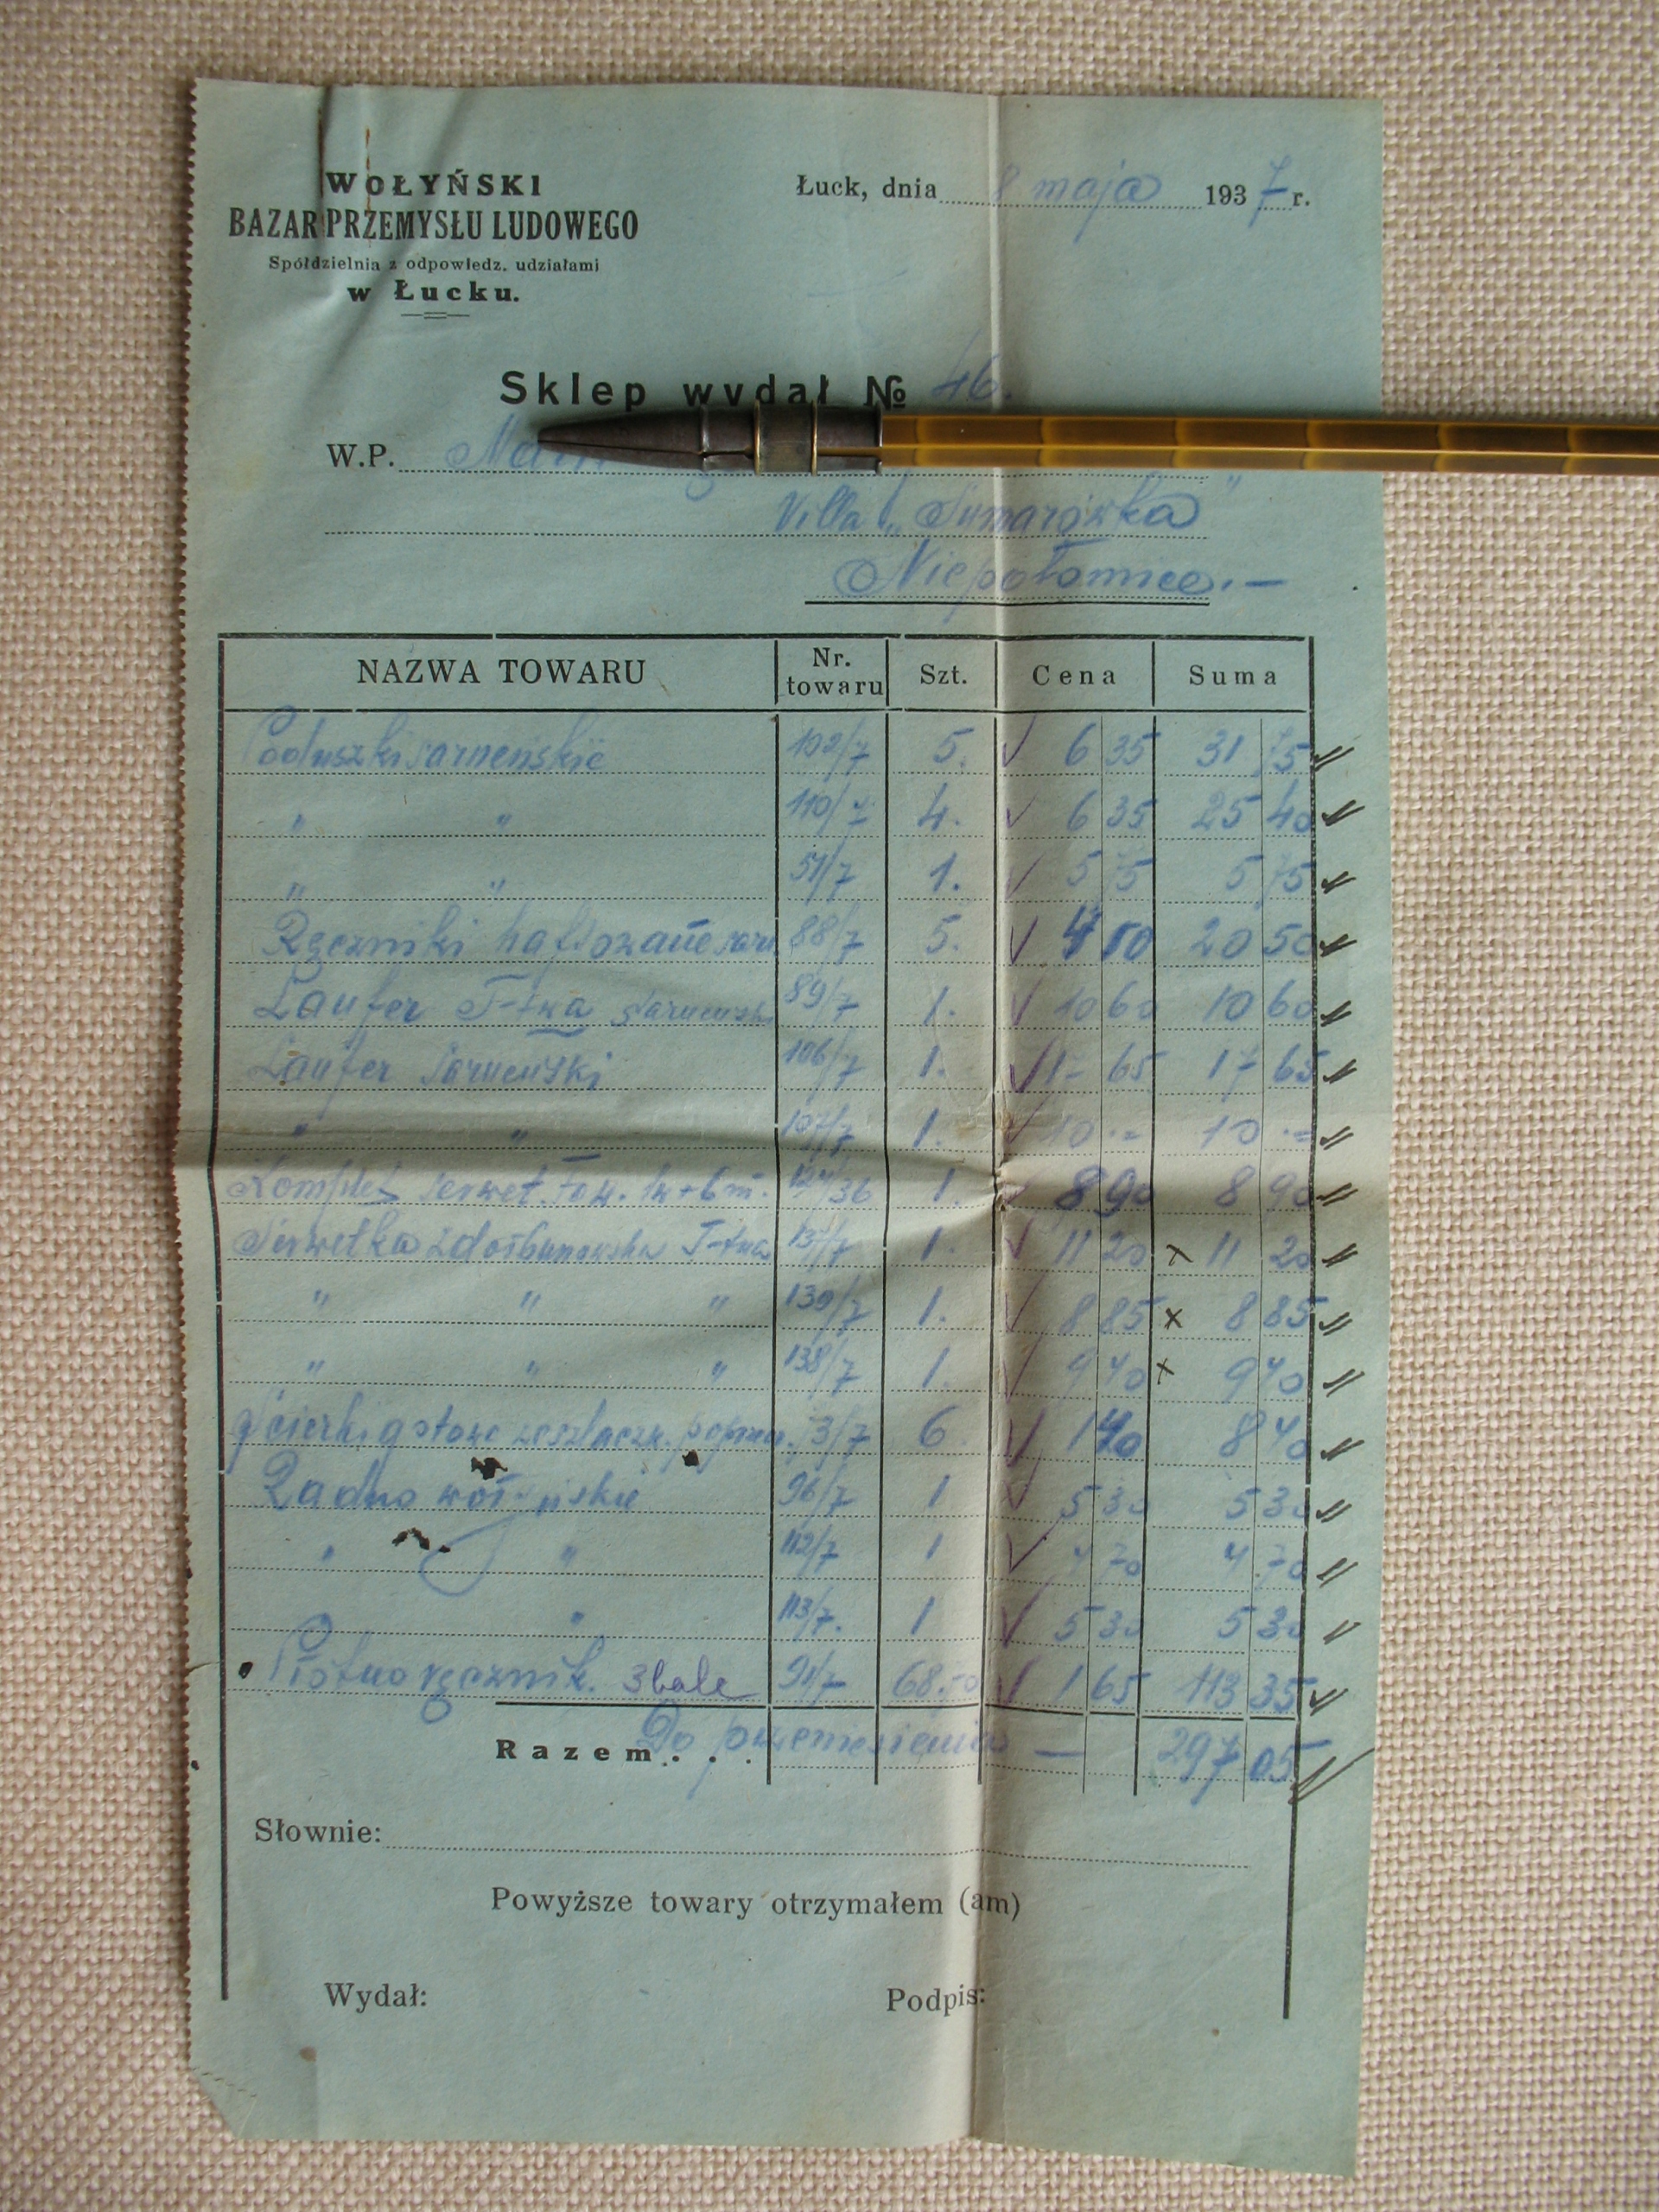 WOŁYŃSKI
BAZAR PRZEMYSŁU LUDOWEGO
Spółdzielnia z odpowiedz. udziałami
w Łucku.
Łuck, dnia 8 maja 1937 r.
Sklep wydał № 46.
W.P.
Villa „Sumarówka"
Niepołomice.—
NAZWA TOWARU Nr. towaru Szt. Cena Suma
Poduszki sarneńskie 102/7 5. 6 35 31 75
" " 110/7 4. 6 35 25 40
" " 51/7 1. 5 75 5 75
Ręczniki haftowane sarn. 88/7 5. 4 10 20 50
Laufer T-twa sarneński 89/7 1. 10 60 10 60
Laufer sarneński 106/7 1. 17 65 17 65
" " 107/7 1. 10 .= 10 .=
Komplet serwet. tow. 1w+6m. 124/36 1. 8 90 8 90
Serwetka zdołbunowska T-twa 137/7 1. 11 20 x 11 20
" " " 139/7 1. 8 85 x 8 85
" " " 138/7 1. 9 40 x 9 40
Ścierki gotowe 3/7 6. 1 40 8 40
Radno wołyńskie 96/7 1 5 30 5 30
" " 112/7 1 4 70 4 70
" 113/7. 1 5 30 5 30
Płótno ręcznik. 3 bale 91/7 68.70 1 65 113 35
Razem . . . Do przeniesienia — 297 05
Słownie:
Powyższe towary otrzymałem (am)
Wydał: Podpis: